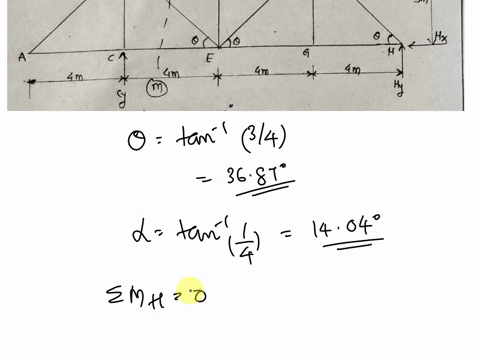 3m
θ θ θ Hx
A C E G H
4m 4m 4m 4m
Cy m Hy
θ = tan⁻¹ (3/4)
= 36.87°
α = tan⁻¹ (1/4) = 14.04°
ΣM_H = 0